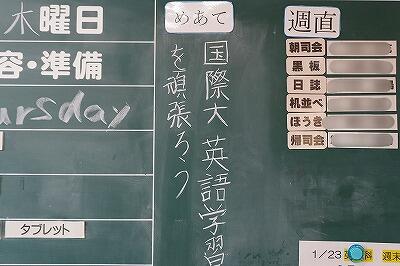 木曜日
容・準備
ursday
タブレット
めあて
国際大 英語学習
を頑張ろう
週直
朝司会
黒板
日誌
机並べ
ほうき
帰司会
1/23
科 週末